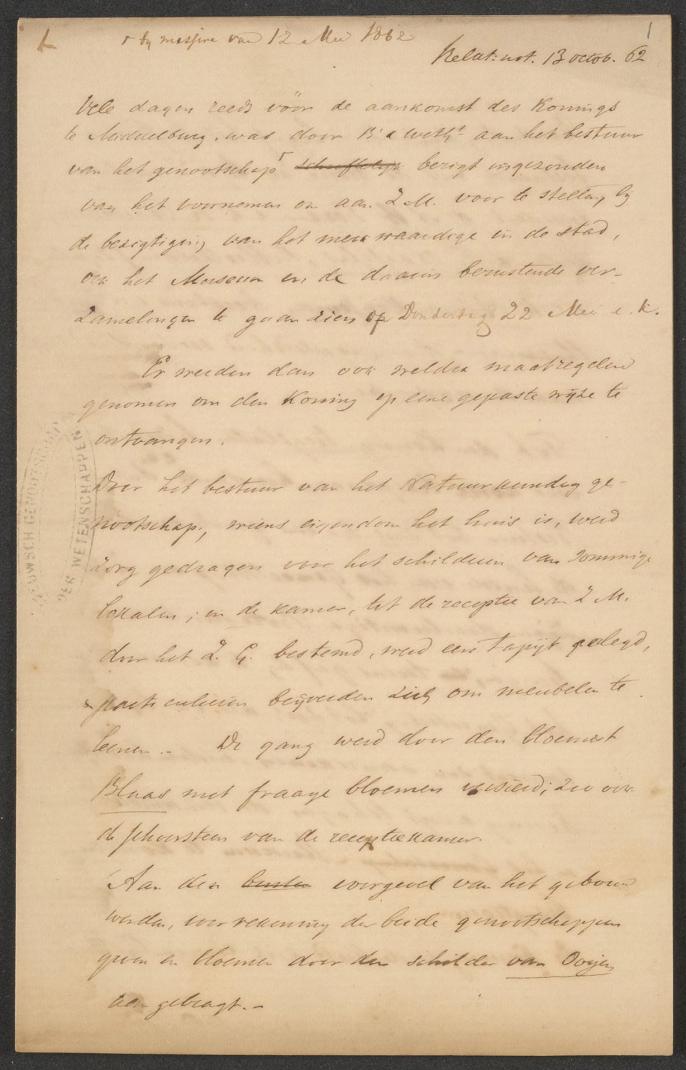 1
┌ by missive van 12 Mei 1862
Relat: not. 13 octob. 62
Vele dagen reeds vóór de aankomst des Konings
te Middelburg, was door B. & Weth.rs aan het bestuur
van het genootschap ┌ schriftelijk berigt ingezonden
van het voornemen om aan Z. M. voor te stellen, bij
de bezigtiging van het merkwaardige in de stad,
ook het Museum en de daarin berustende ver-
zamelingen te gaan zien op Donderdag 22 Mei e.k.
Er werden dan ook weldra maatregelen
genomen om den Koning op eene gepaste wijze te
ontvangen.
Door het bestuur van het Natuurkundig ge-
nootschap, wiens eigendom het huis is, werd
zorg gedragen voor het schilderen van sommige
lokalen; in de kamer, tot de receptie van Z. M.
door het Z. G. bestemd, werd een tapijt gelegd,
particulieren beijverden zich om meubelen te
leenen. - De gang werd door den bloemist
Blaas met fraaye bloemen versierd; zoo ook
de schoorsteen van de receptiekamer.
Aan den voorgevel van het gebouw
werden, voor rekening der beide genootschappen
groen en bloemen door den schilder van Ooijen
aangebragt. -
ZEEUWSCH GENOOTSCHAP
DER WETENSCHAPPEN